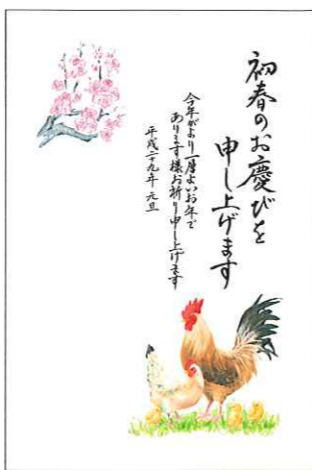 初春のお慶びを
申し上げます
今年がより一層よいお年で
あります様お祈り申し上げます
平成二十九年 元旦